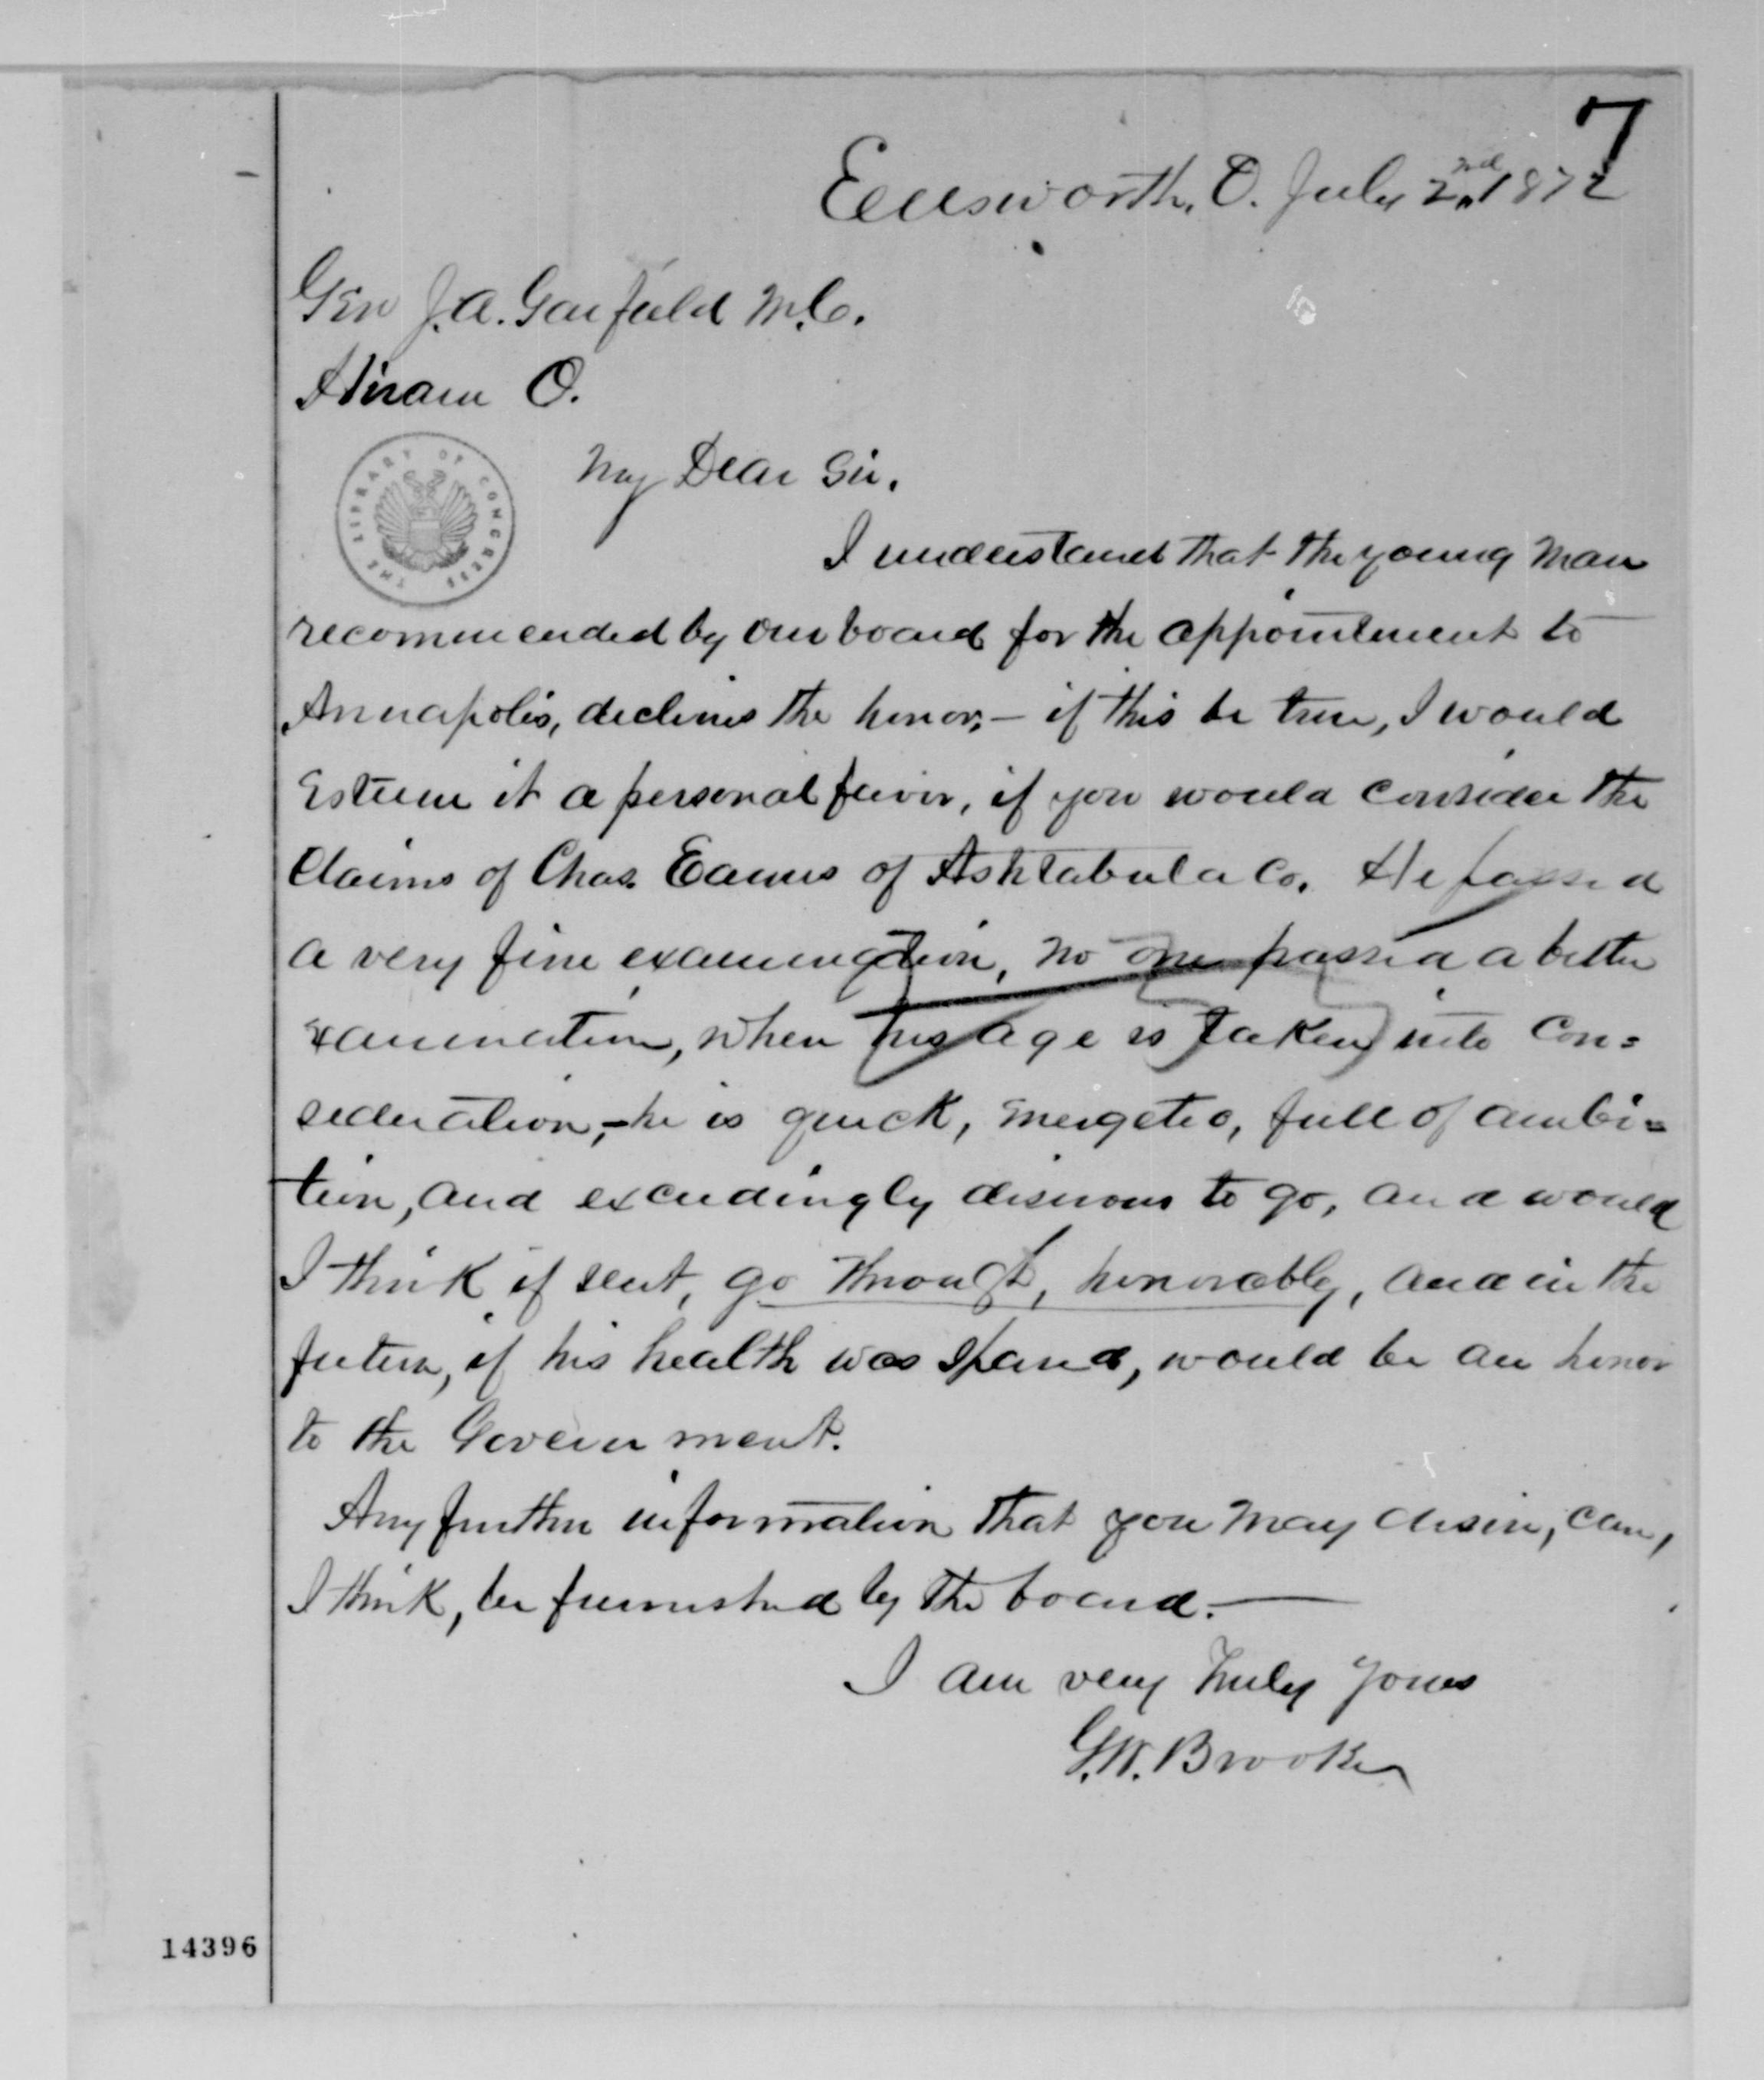 7
Ellsworth, O. July 2nd 1872
Gen J. A. Garfield M.C.
Hiram O.
THE LIBRARY OF CONGRESS
My Dear Sir.
I understand that the young man
recommended by our board for the appointment to
Annapolis, declines the honor,- if this be true, I would
esteem it a personal favor, if you would consider the
Claims of Chas. Eames of Ashtabula Co. He passed
a very fine examination, no one passed a better
examination, when his age is taken into con=
sideration,- he is quick, energetic, full of ambi=
tion, and exceedingly desirous to go, and would
I think if sent, go through, honorably, and in the
future, if his health was spared, would be an honor
to the Government.
Any further information that you may desire, can,
I think, be furnished by the board.—
I am very truly yours
G.W. Brooke
14396